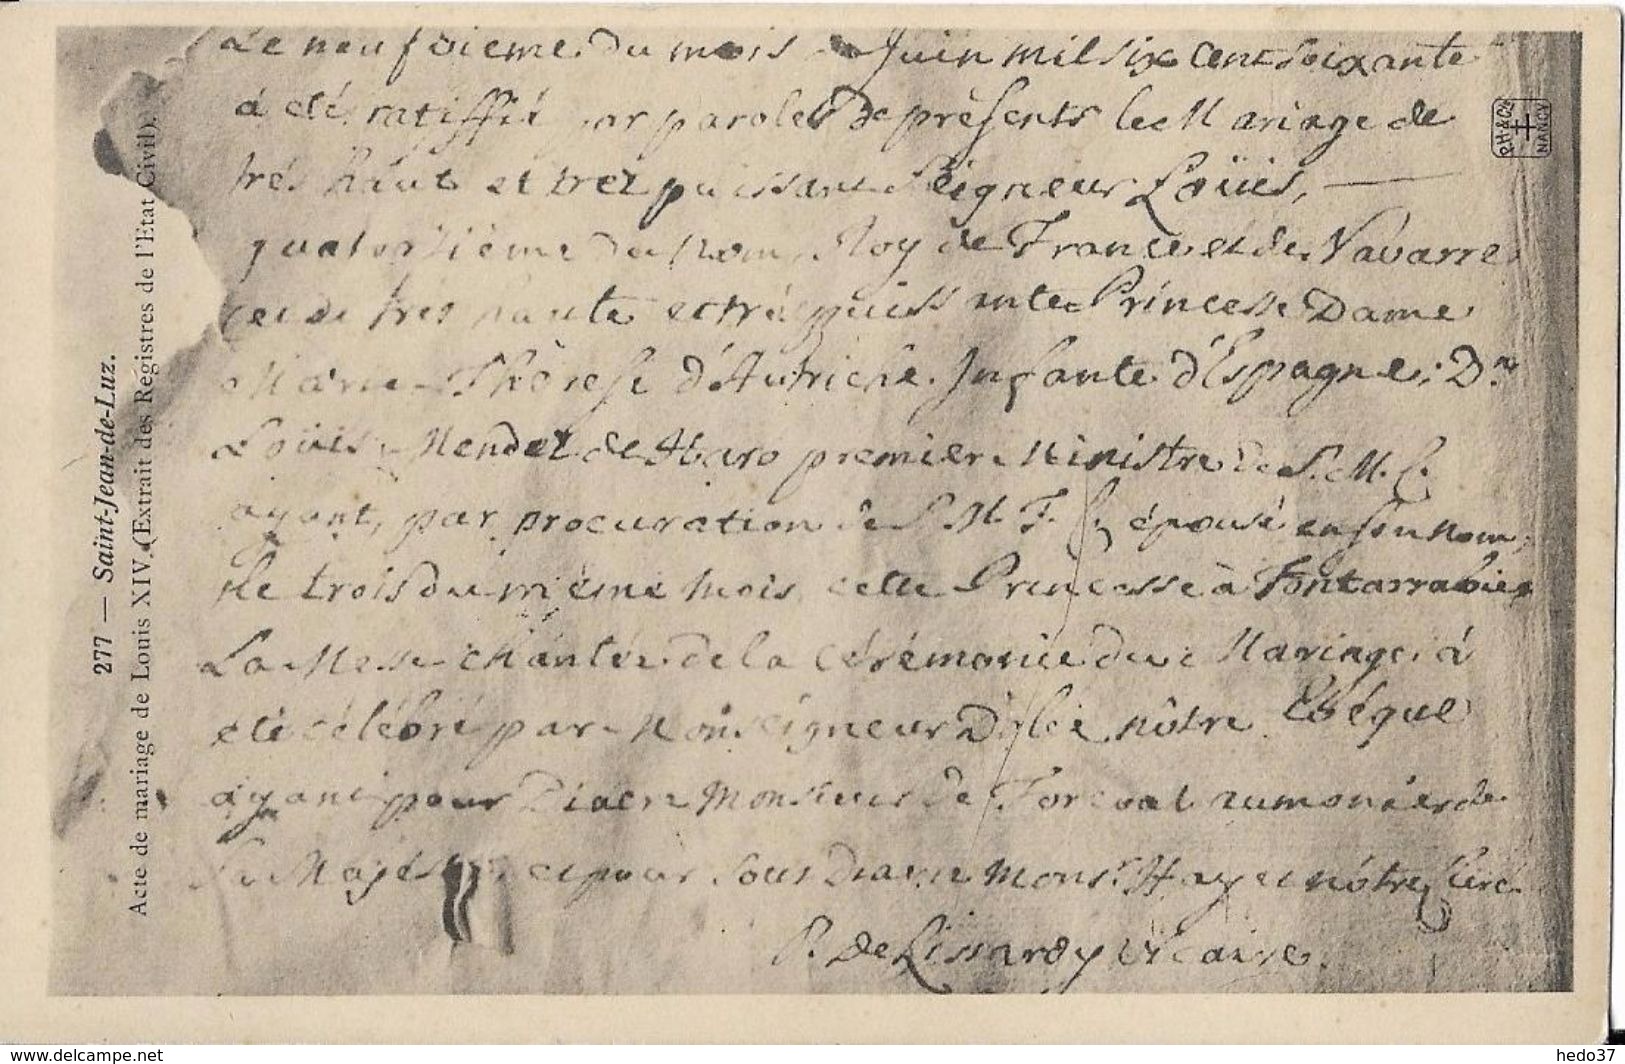 277 — Saint-Jean-de-Luz.
Acte de mariage de Louis XIV. (Extrait des Registres de l'Etat Civil).
Le neufvieme du mois de Juin mil six cent soixante
a eté ratiffié par paroles de présents le Mariage de
trés haut et trés puissant Seigneur Loüis,
quatorsiéme du Nom, Roy de France et de Navarre
et de trés haute et trés puissante Princesse Dame
Marie Thérese d'Autriche Infante d'Espagne; Dn
Loüis Mendez de Haro premier Ministre de S. M. C.
ayant, par procuration de S. M. T. C, épousé en son nom,
le trois du même mois cette Princesse à Fontarrabie
La Messe chantée de la Cérémonie du Mariage, á
eté célébré par Monseigneur Dolce nôtre Evéque
ayant pour Diacre Monsieur de Forcoal aumonier de
Sa Majesté et pour Sous Diacre Monsr Hayet nótre Curé
P. de Lissardy vicaire
PH & Cie
NANCY
www.delcampe.net
hedo37